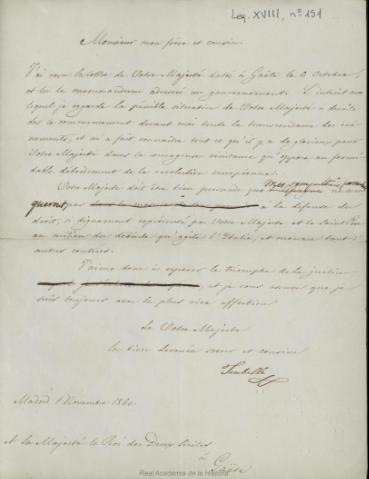 Leg. XVIII, nº 151
Monsieur mon frère et cousin.
J'ai reçu la lettre de Votre Majesté datée à Gaëte le 6 Octobre,
et lu le memorandum adressé au gouvernement. L'intérêt avec
lequel je regarde la pénible situation de Votre Majesté a dévoilé
dès le commencement devant moi toute la transcendance des évé-
nements, et m'a fait connaître tout ce qu'il y a de glorieux pour
Votre Majesté dans la courageuse résistance qu'oppose au formi-
dable débordement de la révolution européenne.
Votre Majesté doit être bien persuadé que mes sympathies
queront pas à la défense du
droit, si dignement représenté par Votre Majesté et le Saint Père
au milieu des débats qu'agite l'Italie, et menace tant d'
autres contrées.
J'aime donc à espérer le triomphe de la justice
et je vous assure que je
suis toujours avec la plus vive affection
De Votre Majesté
la bien dévouée sœur et cousine
Isabelle
Madrid Novembre 1860.
A Sa Majesté le Roi des Deux Siciles
à Gaëte
Real Academia de la Historia